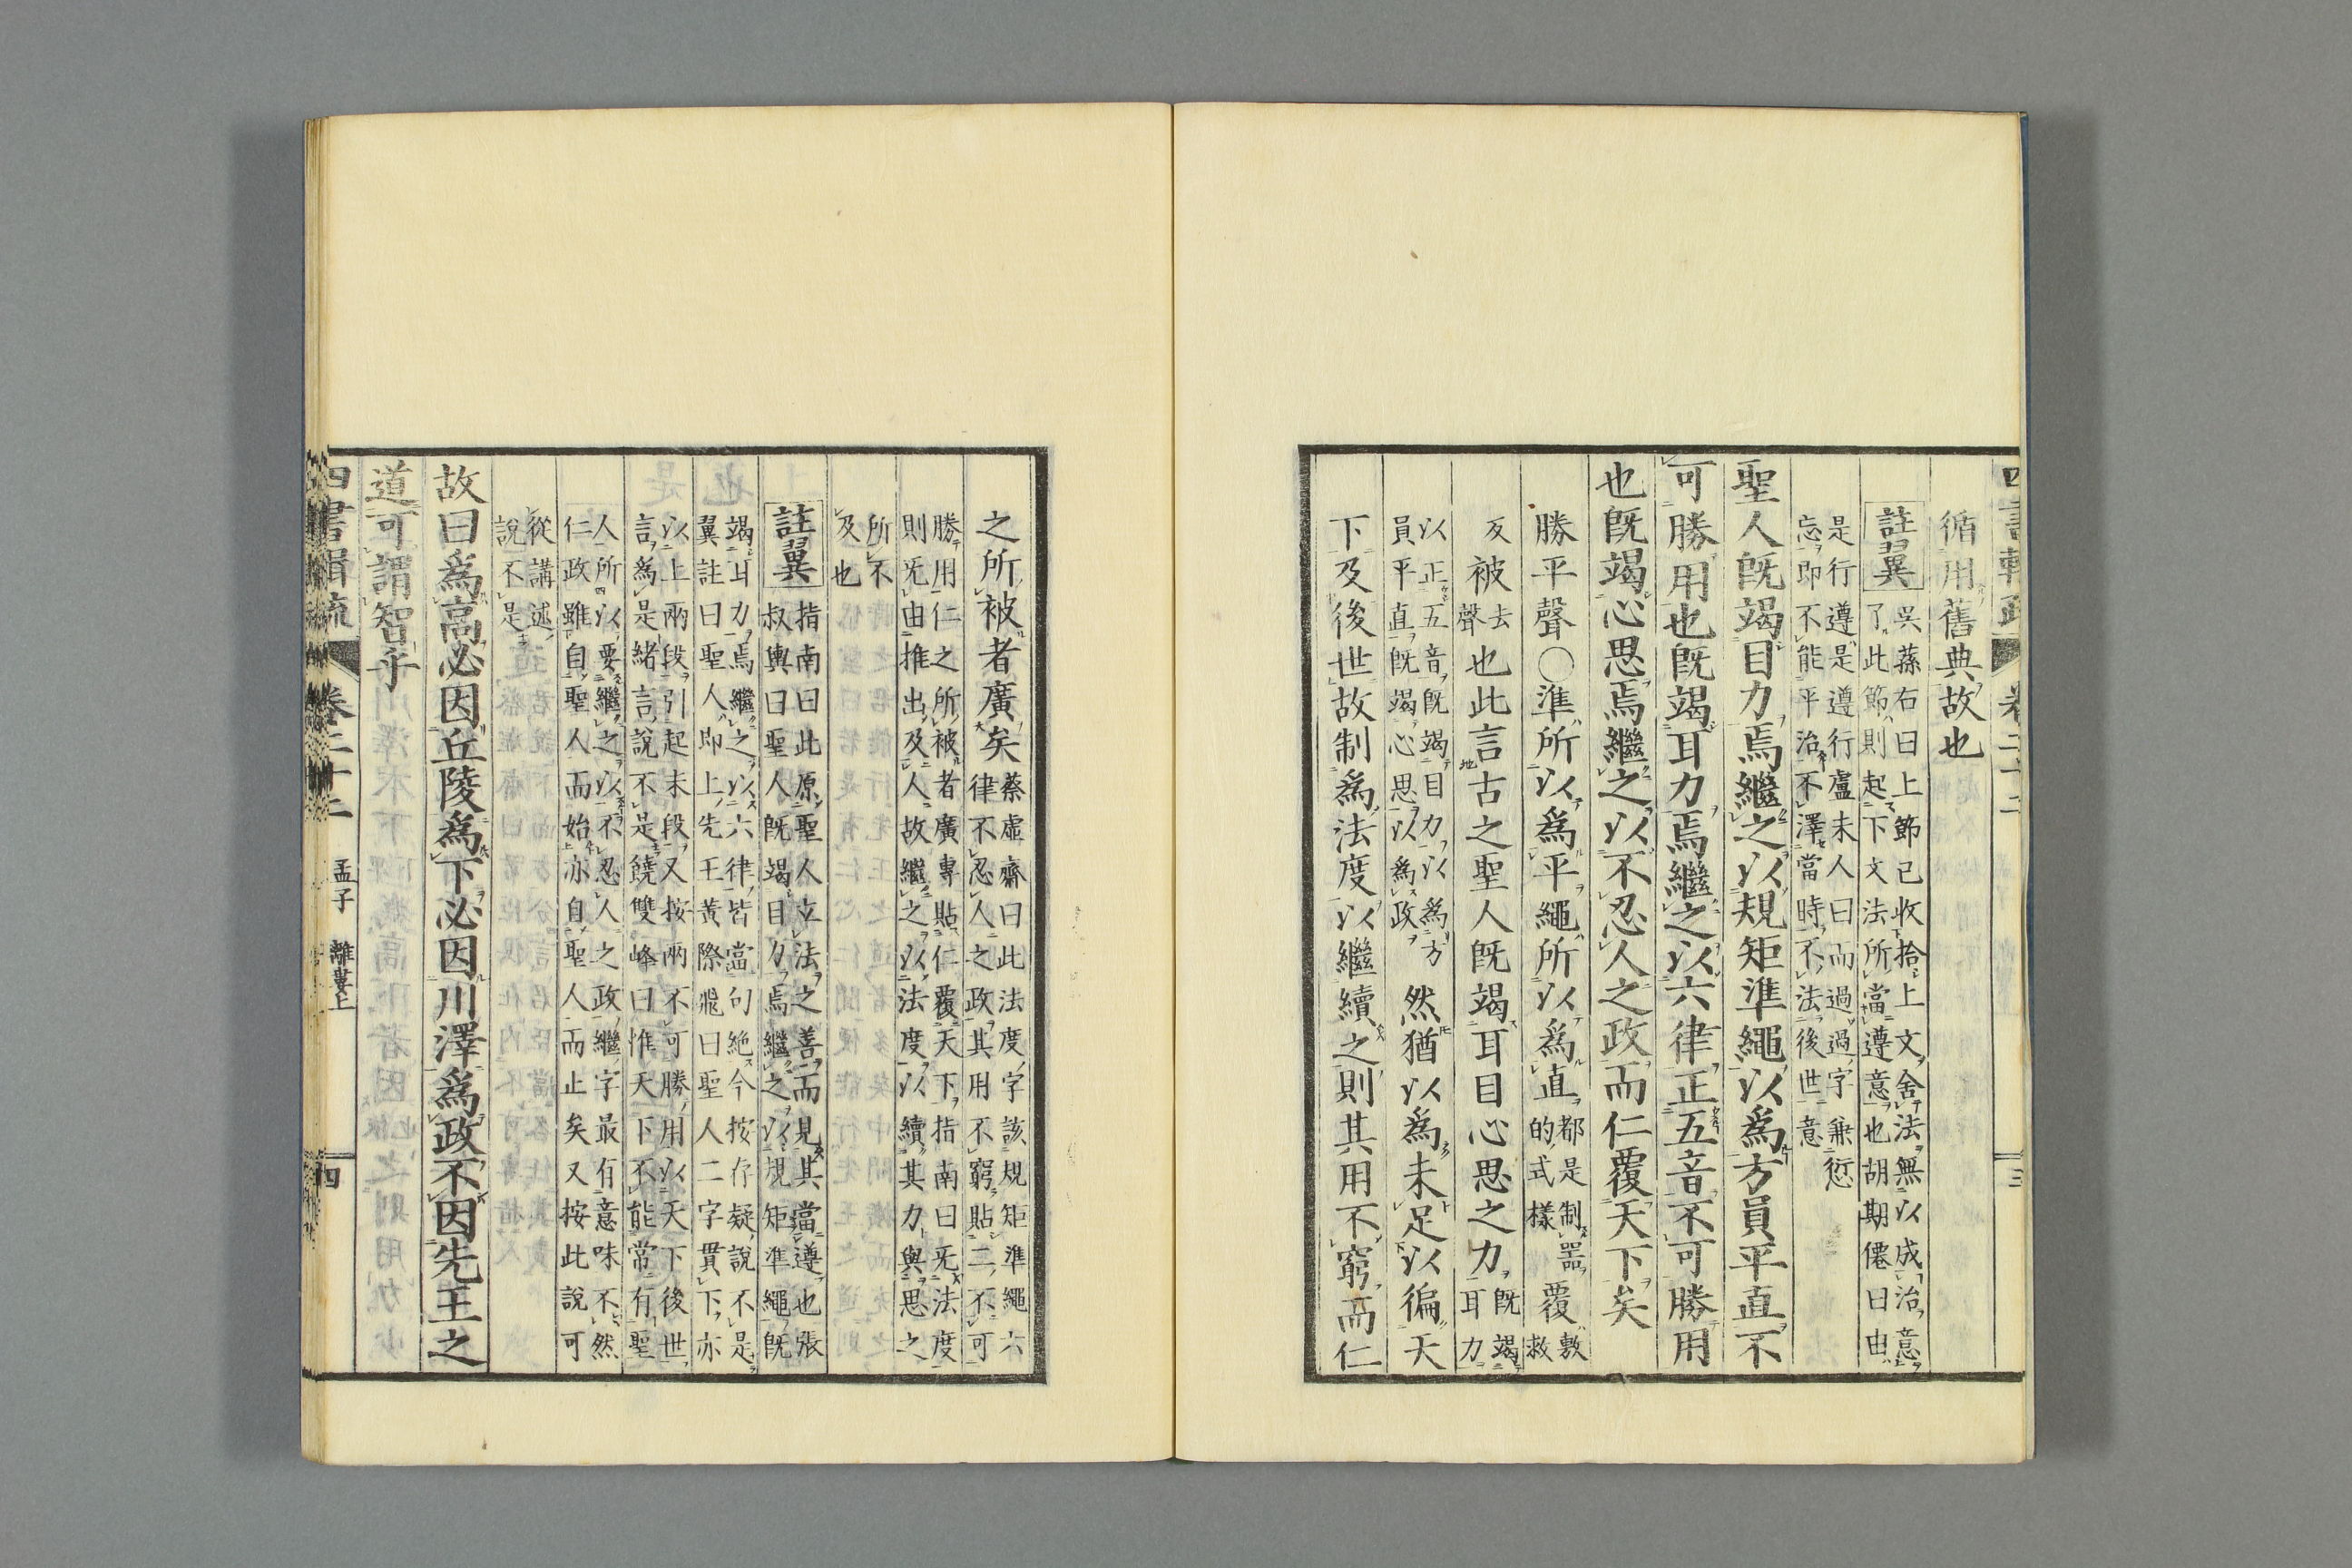 循用舊典故也
註翼
吳蓀右曰上節己收拾上文舍法無以成治意
了此節則起下文法所當遵意也胡期僊曰由
是行遵是遵行盧未人曰而過過字兼愆
忘即不能平治不澤當時不法後世意
聖人既竭目力焉繼之以規矩準繩以爲方員平直不
可勝用也既竭耳力焉繼之以六律正五音不可勝用
也既竭心思焉繼之以不忍人之政而仁覆天下矣
勝平聲○準所以爲平繩所以爲直
都是制器
的式樣
覆
敷
救
反
被
去
聲
也此言古之聖人既竭耳目心思之力
既竭
耳力
以正五音既竭目力以爲方
員平直既竭心思以爲政
然猶以爲未足以徧天
下及後世故制爲法度以繼續之則其用不窮而仁
之所被者廣矣
蔡虛齋曰此法度字該規矩準繩六
律不忍人之政其用不窮貼二不可
勝用仁之所被者廣專貼仁覆天下指南曰旡法度
則旡由推出及人故繼之以法度以續其力與思之
所不
及也
註翼
指南曰此原聖人立法之善而見其當遵也張
叔輿曰聖人既竭目力焉繼之以規矩準繩既
竭耳力焉繼之以六律皆當句絶今按存疑說不是
翼註曰聖人即上先王黃際飛曰聖人二字貫下亦
以上兩段引起末段又按兩不可勝用以天下後世
言爲是緒言說不是饒雙峰曰惟天下不能常有聖
人所以要繼之以不忍人之政繼字最有意味不然
仁政雖自聖人而始亦自聖人而止矣又按此說可
從講述
說不是
故曰爲高必因丘陵爲下必因川澤爲政不因先王之
道可謂智乎
卷二十二
孟子
離婁上
四